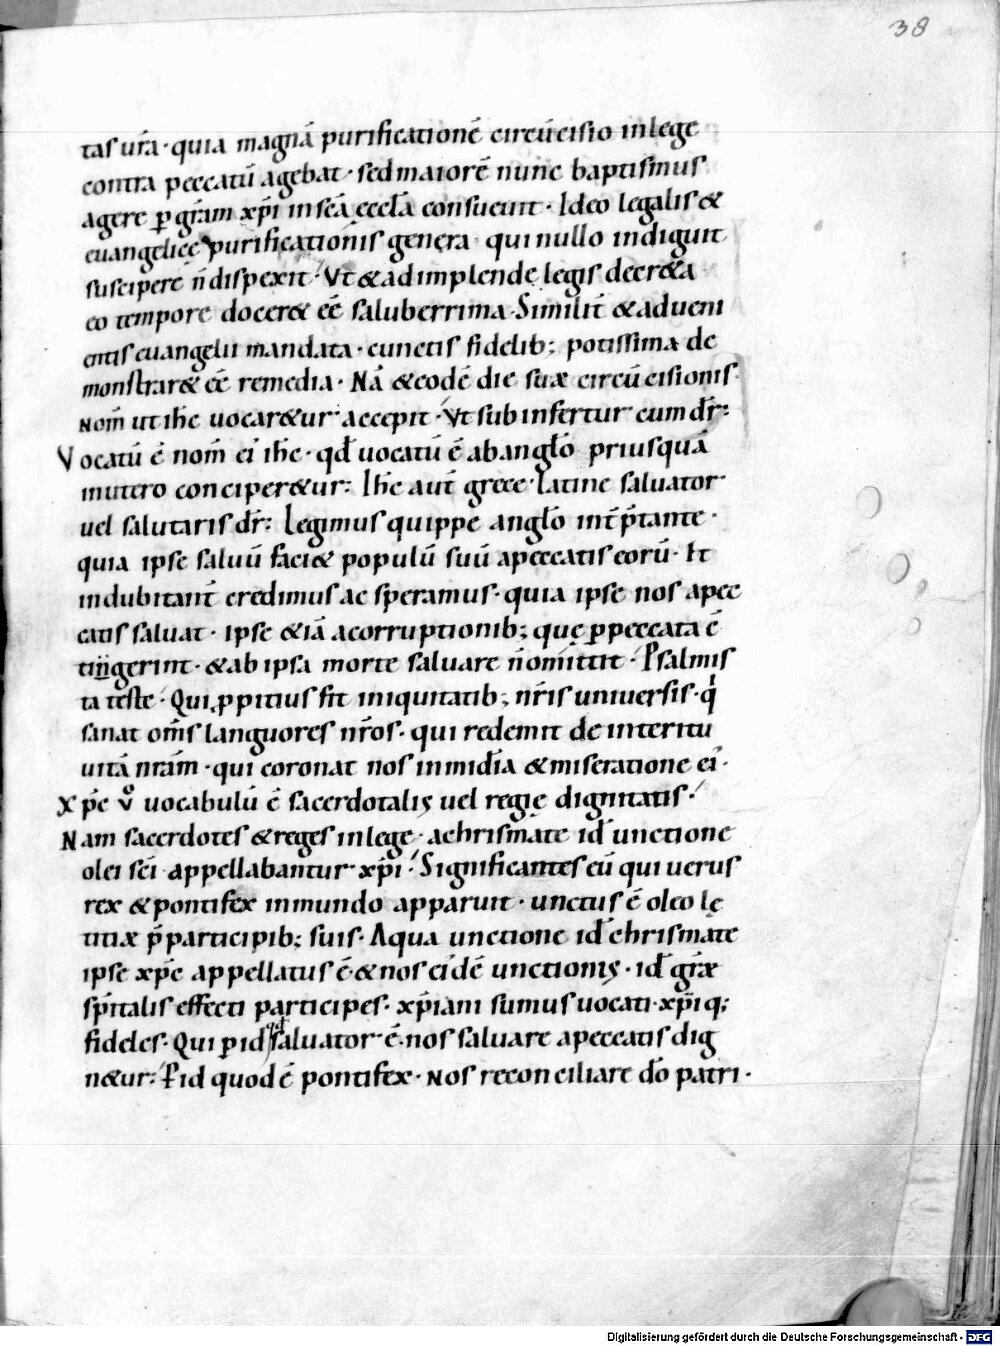 38
tas ur̄a · quia magnā purificationē circūcisio in lege
contra peccatū agebat · sed maiorē nunc baptismus
agere p̱ gr̄am xp̄i in sc̄a eccl̄a consueuit · Ideo legalis &
euangelicę purificationis genera · qui nullo indiguit
suscipere n̄ dispexit · Vt & ad implendę legis decr&a
eo tempore docer& ēē saluberrima · Similit̄ & adueni
entis euangelii mandata · cunctis fidelib; potissima de
monstrar& ēē remedia · Nā & eodē die suæ circūcisionis ·
nom̄ ut ih̄c uocar&ur accepit · Vt subinfertur cum dr̄:
Vocatū ē nom̄ ei' ih̄c · qđ uocatū ē ab angl̄o priusquā
in utero conciper&ur: Ih̄c aut̄ grece · Latine saluator
uel salutaris dr̄: Legimus quippe angl̄o int̄p̄tante ·
quia ipse saluū faci& populū suū a peccatis eorū · Et
indubitant̄ credimus ac speramus · quia ipse nos a pec
catis saluat · ipse &iā a corruptionib; quę p̱ peccata cō
tingerint · & ab ipsa morte saluare n̄ omittit · Psalmis
ta teste · Qui ꝓpitius fit iniquitatib; nr̄is uniuersis · q'
sanat om̄s languores nr̄os · qui redemit de interitu
uitā nr̄am · qui coronat nos in mid̄ia & miseratione ei' ·
Xp̄c v̊ uocabulū ē sacerdotalis uel regię dignitatis ·
Nam sacerdotes & reges in lege · a chrismate id̄ unctione
olei sc̄i appellabantur xp̄i · Significantes eū qui uerus
rex & pontifex in mundo apparuit · unctus ē oleo lę
titiæ p̄ participib; suis · A qua unctione id̄ chrismate
ipse xp̄c appellatus ē · & nos ei'dē unctionis · id̄ gr̄æ
sp̄italis effecti participes · xp̄iani sumus uocati · xp̄iq;
fideles · Qui p̱ id qđ saluator ē · nos saluare a peccatis dig
n&ur: P̱ id quod ē pontifex · nos reconciliare dō patri ·
Digitalisierung gefördert durch die Deutsche Forschungsgemeinschaft - DFG